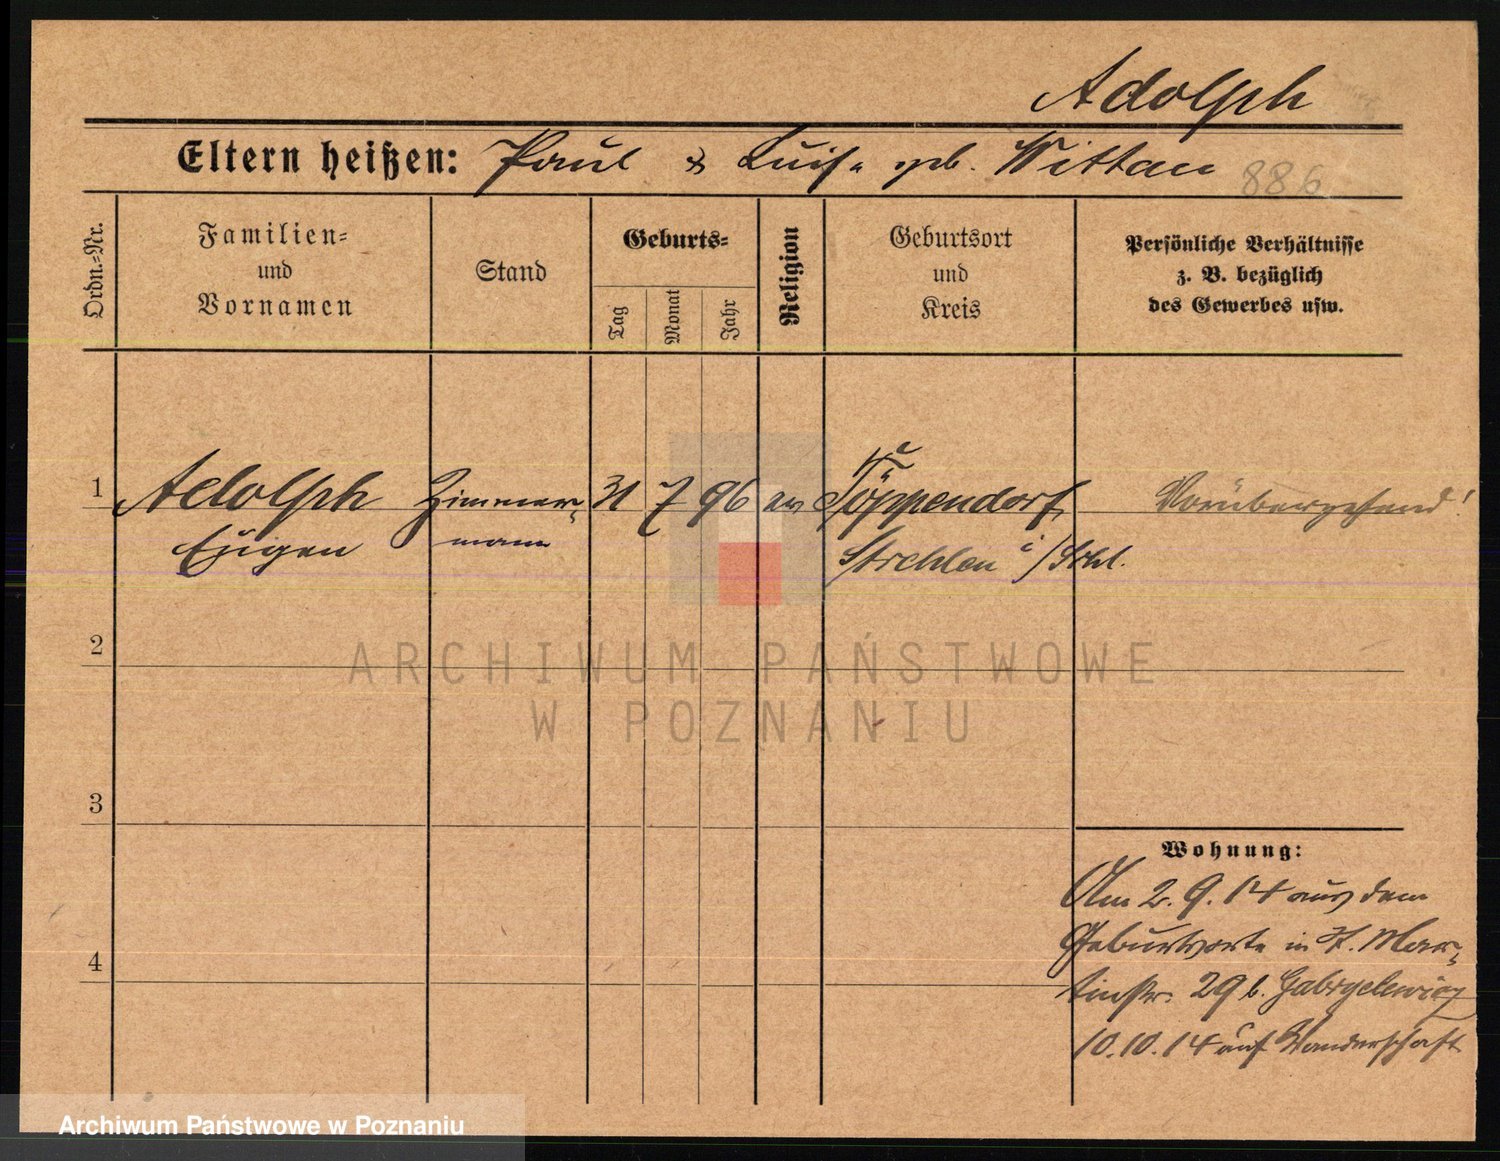 Adolph
Eltern heißen: Paul & Luise geb. Wittau 886
Ordn.-Nr.
Familien-
und
Vornamen
Stand
Geburts-
Tag
Monat
Jahr
Religion
Geburtsort
und
Kreis
Persönliche Verhältnisse
z. B. bezüglich
des Gewerbes usw.
1 Adolph Zimmer- 31 7 96 ev Töppendorf Vorübergehend!
Eugen mann Strehlen i/Schl.
2
3
4
Wohnung:
Am 2.9.14 aus dem
Geburtsorte in St. Mar-
tinstr. 29 b. Gabryelewicz
10.10.14 auf Wanderschaft
ARCHIWUM PAŃSTWOWE
W POZNANIU
Archiwum Państwowe w Poznaniu